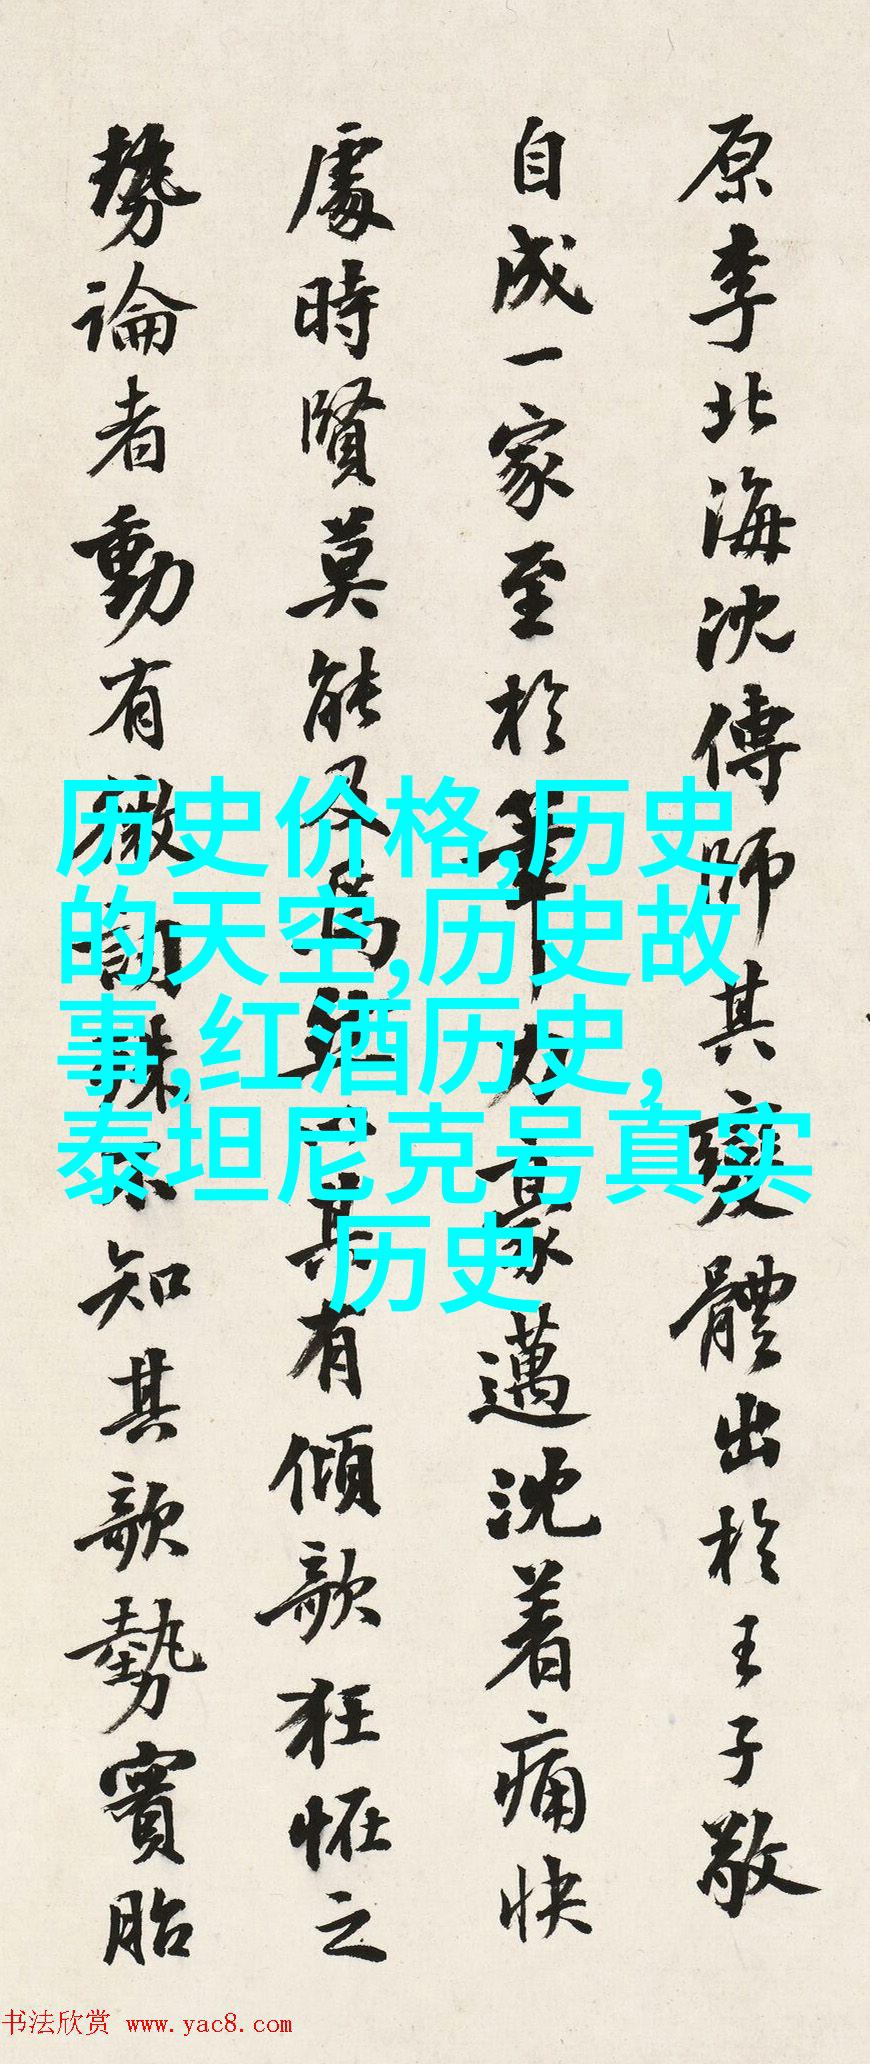 原李北海沈傳師其變體出於王子敬
自成一家至於筆力豪邁沈着痛快
處時賢莫能及為其有傾欹狂怪之
勢論者動有微詞殊不知其欹勢實胎
历史价格,历史
的天空,历史故
事,红酒历史,
泰坦尼克号真实
历史
书法欣赏 www.yac8.com